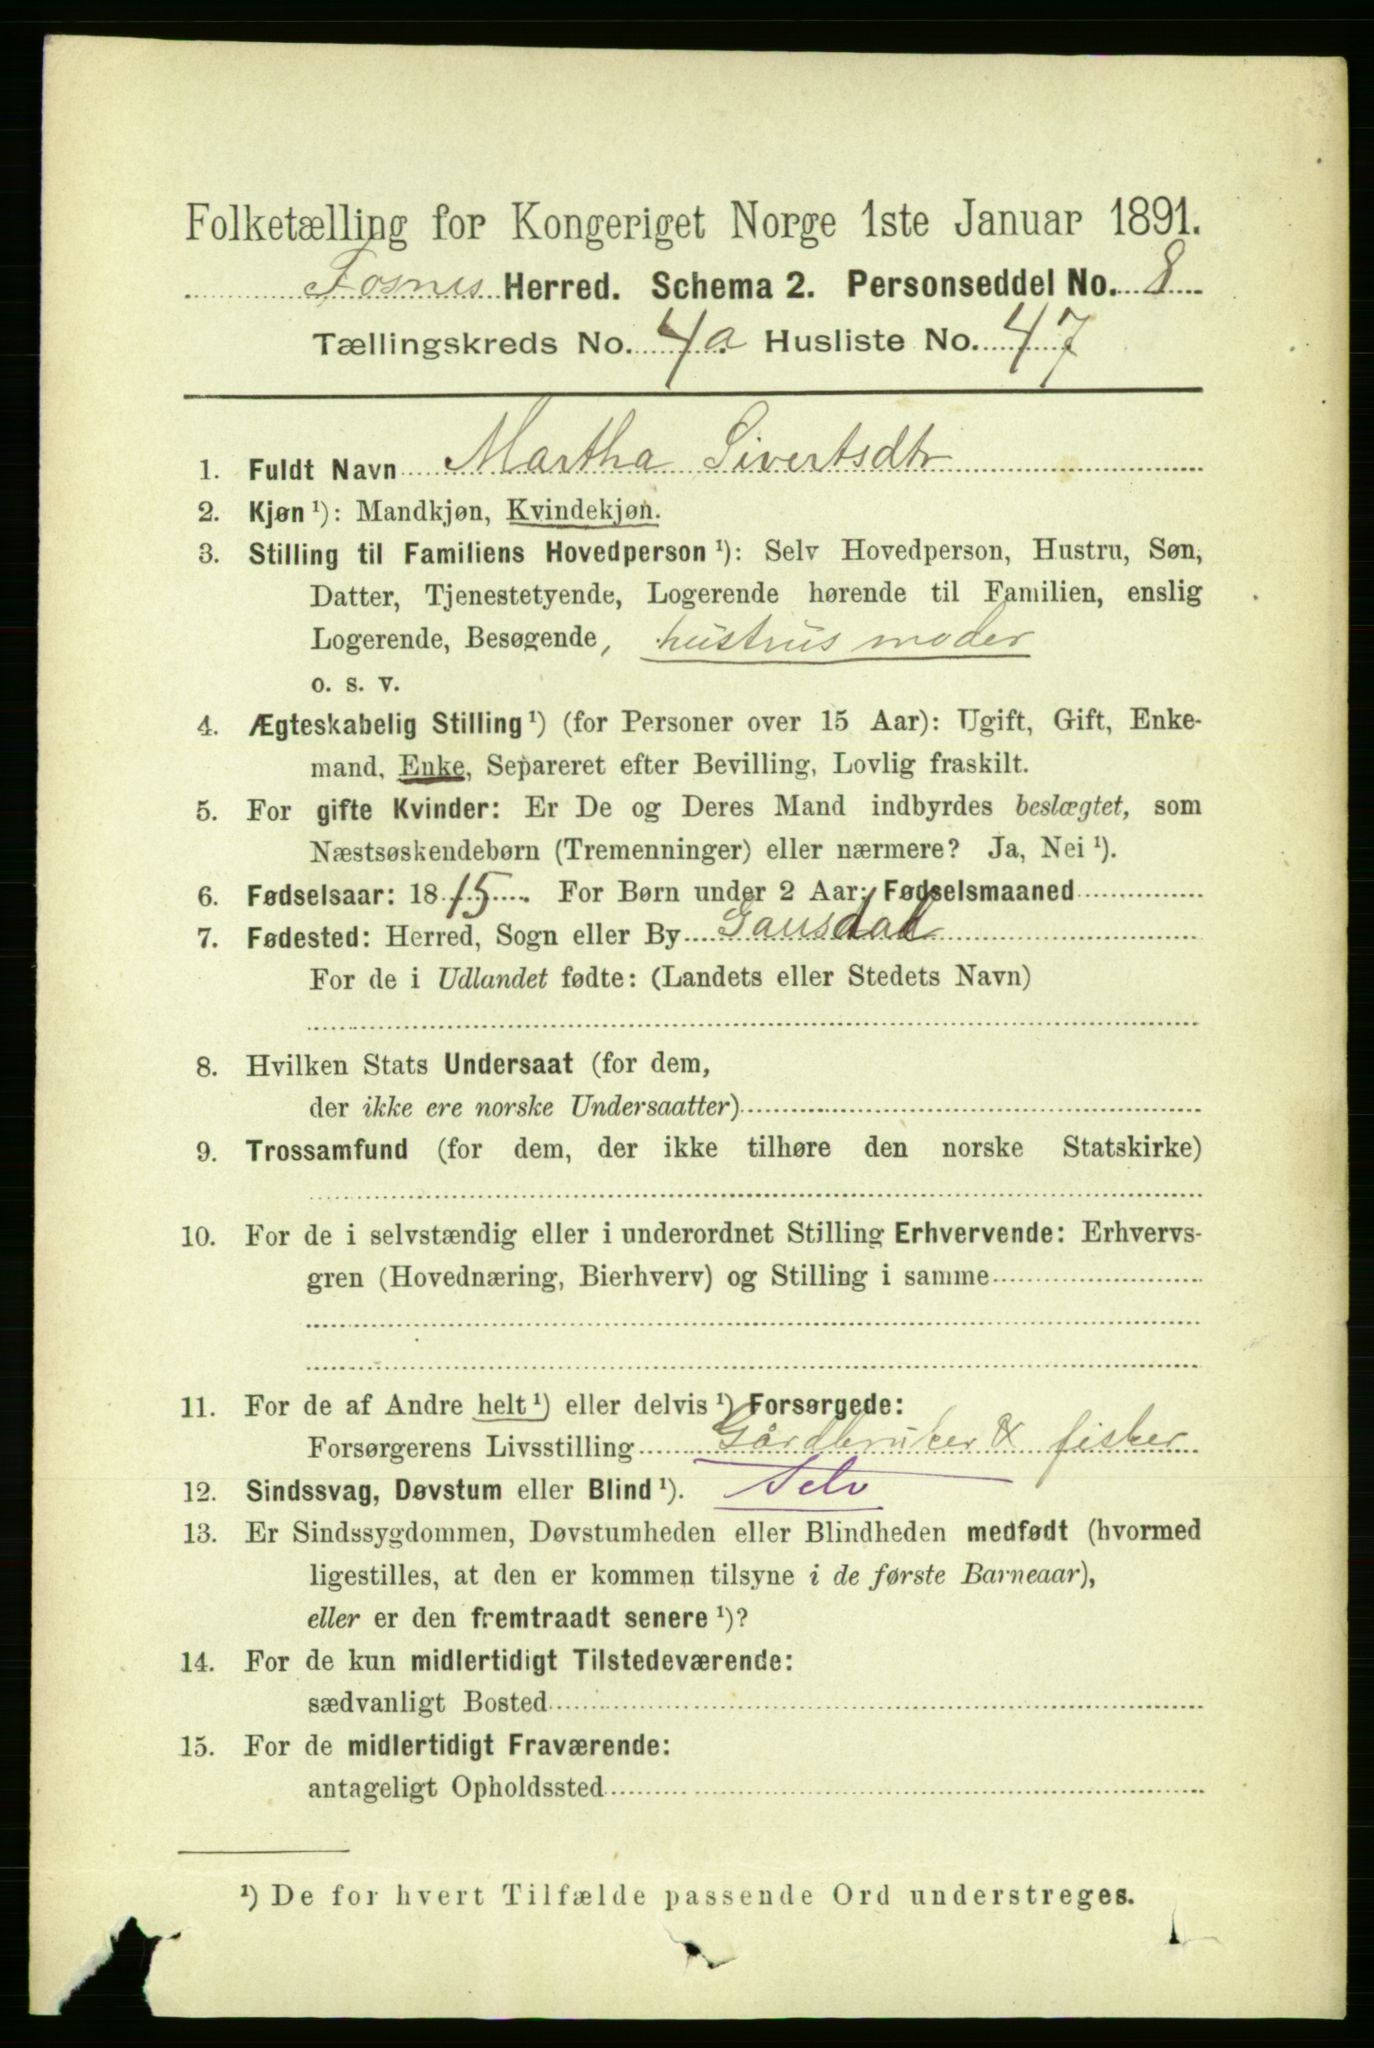 Folketælling for Kongeriget Norge 1ste Januar 1891.
Fosnes Herred. Schema 2. Personseddel No. 8
Tællingskreds No. 4a Husliste No. 47
1. Fuldt Navn Martha Sivertsdtr
2. Kjøn ¹): Mandkjøn, Kvindekjøn.
3. Stilling til Familiens Hovedperson ¹): Selv Hovedperson, Hustru, Søn,
Datter, Tjenestetyende, Logerende hørende til Familien, enslig
Logerende, Besøgende, hustrus moder
o. s. v.
4. Ægteskabelig Stilling ¹) (for Personer over 15 Aar): Ugift, Gift, Enke-
mand, Enke, Separeret efter Bevilling, Lovlig fraskilt.
5. For gifte Kvinder: Er De og Deres Mand indbyrdes beslægtet, som
Næstsøskendebørn (Tremenninger) eller nærmere? Ja, Nei ¹).
6. Fødselsaar: 1815. For Børn under 2 Aar: Fødselsmaaned
7. Fødested: Herred, Sogn eller By Gausdal
For de i Udlandet fødte: (Landets eller Stedets Navn)
8. Hvilken Stats Undersaat (for dem,
der ikke ere norske Undersaatter)
9. Trossamfund (for dem, der ikke tilhøre den norske Statskirke)
10. For de i selvstændig eller i underordnet Stilling Erhvervende: Erhvervs-
gren (Hovednæring, Bierhverv) og Stilling i samme
11. For de af Andre helt ¹) eller delvis ¹) Forsørgede:
Forsørgerens Livsstilling Gårdbruker & fisker
12. Sindssvag, Døvstum eller Blind ¹). Selv
13. Er Sindssygdommen, Døvstumheden eller Blindheden medfødt (hvormed
ligestilles, at den er kommen tilsyne i de første Barneaar),
eller er den fremtraadt senere ¹)?
14. For de kun midlertidigt Tilstedeværende:
sædvanligt Bosted
15. For de midlertidigt Fraværende:
antageligt Opholdssted
¹) De for hvert Tilfælde passende Ord understreges.